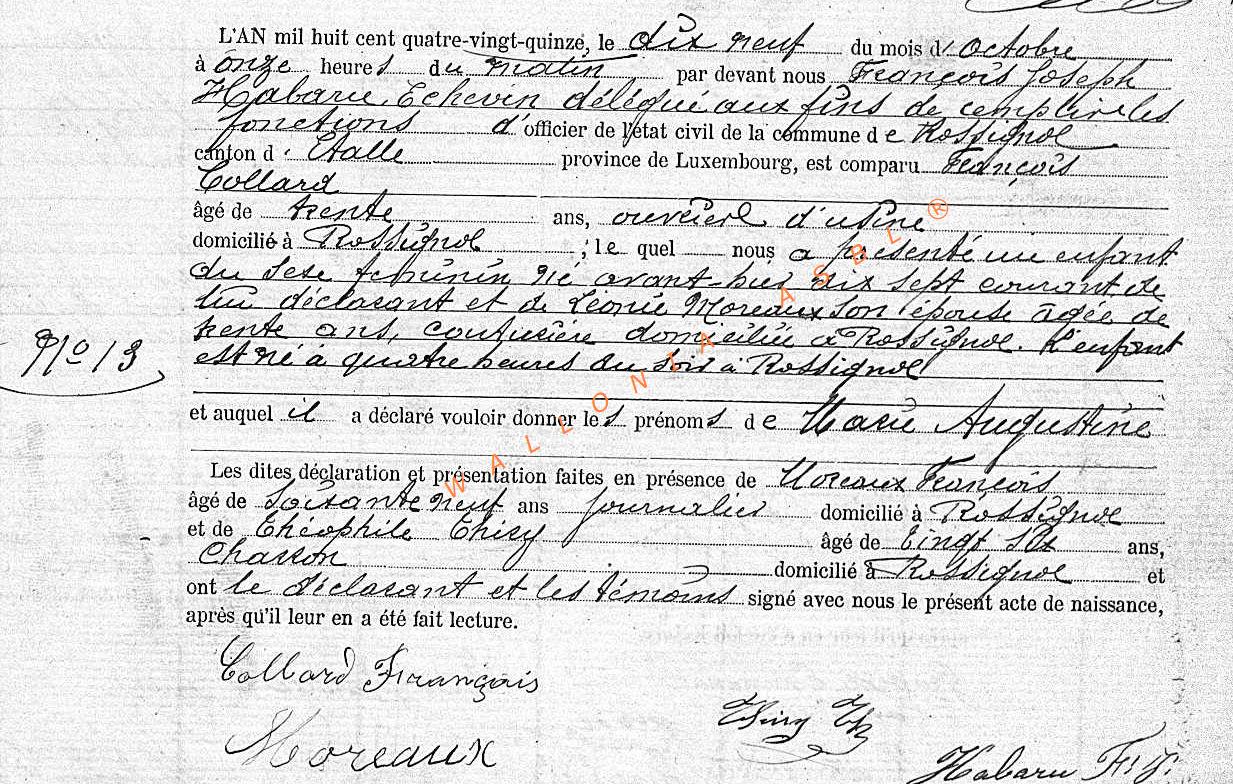 L'AN mil huit cent quatre-vingt-quinze, le dix neuf du mois d'octobre
à onze heures du matin par devant nous François Joseph
Habaru, Echevin délégué aux fins de remplir les
fonctions d'officier de l'état civil de la commune de Rossignol
canton d'Etalle province de Luxembourg, est comparu François
Collard
âgé de trente ans, ouvrier d'usine
domicilié à Rossignol ; lequel nous a présenté un enfant
du sexe féminin né avant-hier dix sept courant de
lui déclarant et de Léonie Moreaux son épouse âgée de
trente ans, couturière domiciliée à Rossignol. L'enfant
est né à quatre heures du soir à Rossignol
N° 13
et auquel il a déclaré vouloir donner les prénoms de Marie Augustine
Les dites déclaration et présentation faites en présence de Moreaux François
âgé de soixante neuf ans journalier domicilié à Rossignol
et de Théophile Thiry âgé de vingt six ans,
charron domicilié à Rossignol et
ont le déclarant et les témoins signé avec nous le présent acte de naissance,
après qu'il leur en a été fait lecture.
Collard François
Thiry Th
Moreaux
Habaru F. J.
WALLONIA ASBL ®